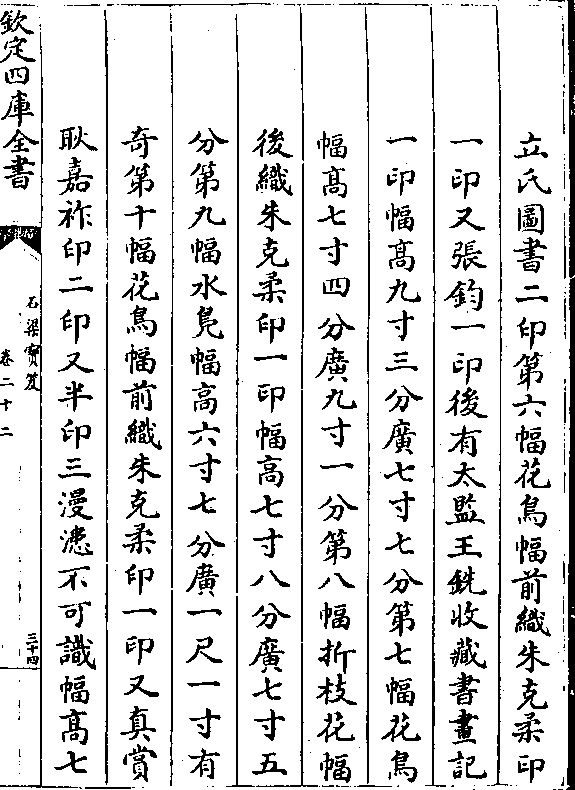 立氏圖書二印第六幅花鳥幅前織朱克柔印
一印又張鈞一印後有太監王銑收藏書畫記
一印幅髙九寸三分廣七寸七分第七幅花鳥
幅髙七寸四分廣九寸一分第八幅折枝花幅
後織朱克柔印一印幅高七寸八分廣七寸五
分第九幅水鳬幅高六寸七分廣一尺一寸有
奇第十幅花鳥幅前織朱克柔印一印又真賞
耿嘉祚印二印又半印三漫漶不可識幅髙七
欽定四庫全書
石渠寳笈
卷二十二
三十四